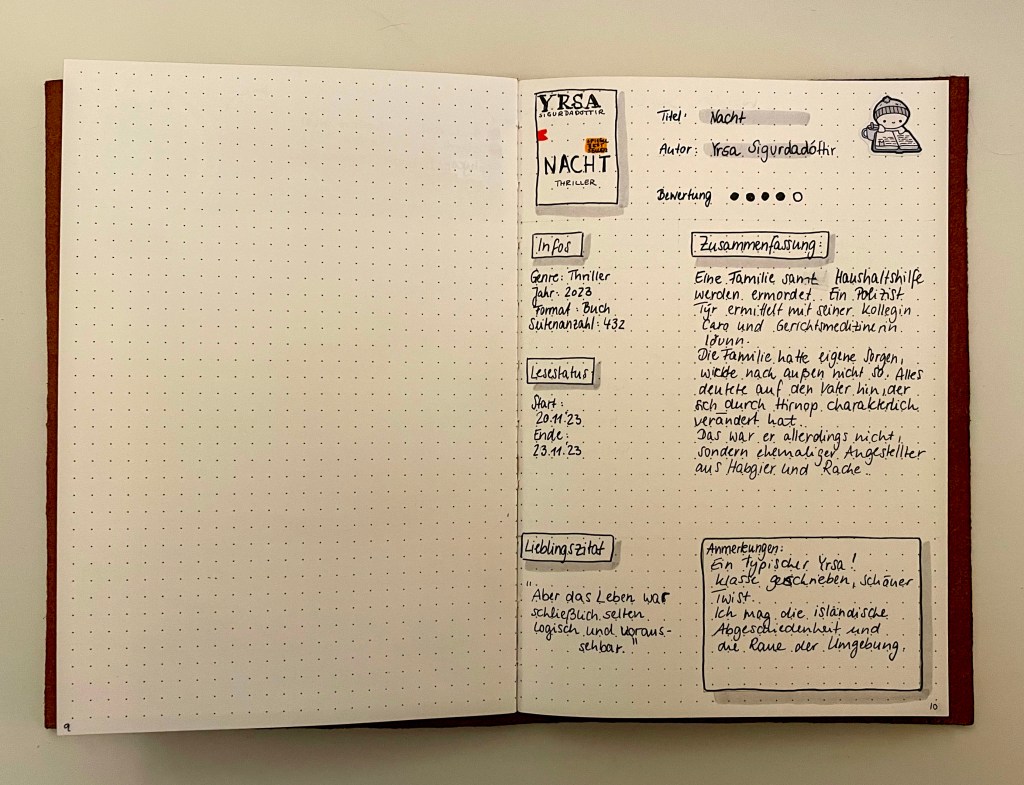 YRSA
SIGURDADOTTIR
NACHT
THRILLER
Titel: Nacht
Autor: Yrsa Sigurdadóttir
Bewertung
Infos
Genre: Thriller
Jahr: 2023
Format: Buch
Seitenanzahl: 432
Lesestatus:
Start:
20.11.'23
Ende:
23.11.'23
Lieblingszitat
"Aber das Leben war
schließlich selten
logisch und voraus-
sehbar."
Zusammenfassung:
Eine Familie samt Haushaltshilfe
werden ermordet. Ein Polizist
Týr ermittelt mit seiner Kollegin
Caro und Gerichtsmedizinerin
Idunn.
Die Familie hatte eigene Sorgen,
wirkte nach außen nicht so. Alles
deutete auf den Vater hin, der
sich durch Hirnop. charakterlich
verändert hat.
Das war er allerdings nicht,
sondern ehemaliger Angestellter
aus Habgier und Rache.
Anmerkungen:
Ein Typischer Yrsa!
klasse geschrieben, schöner
Twist.
Ich mag die isländische
Abgeschiedenheit und
die Raue der Umgebung.
9
10